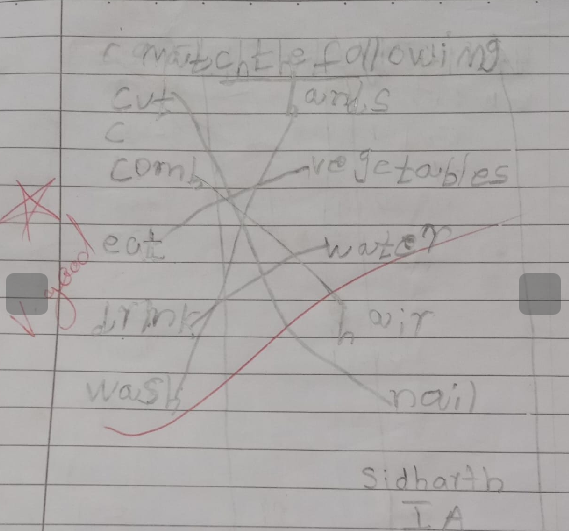 C match the following
cut hands
C
comb vegetables
eat water
drink hair
wash nail
V good
Sidharth
I A